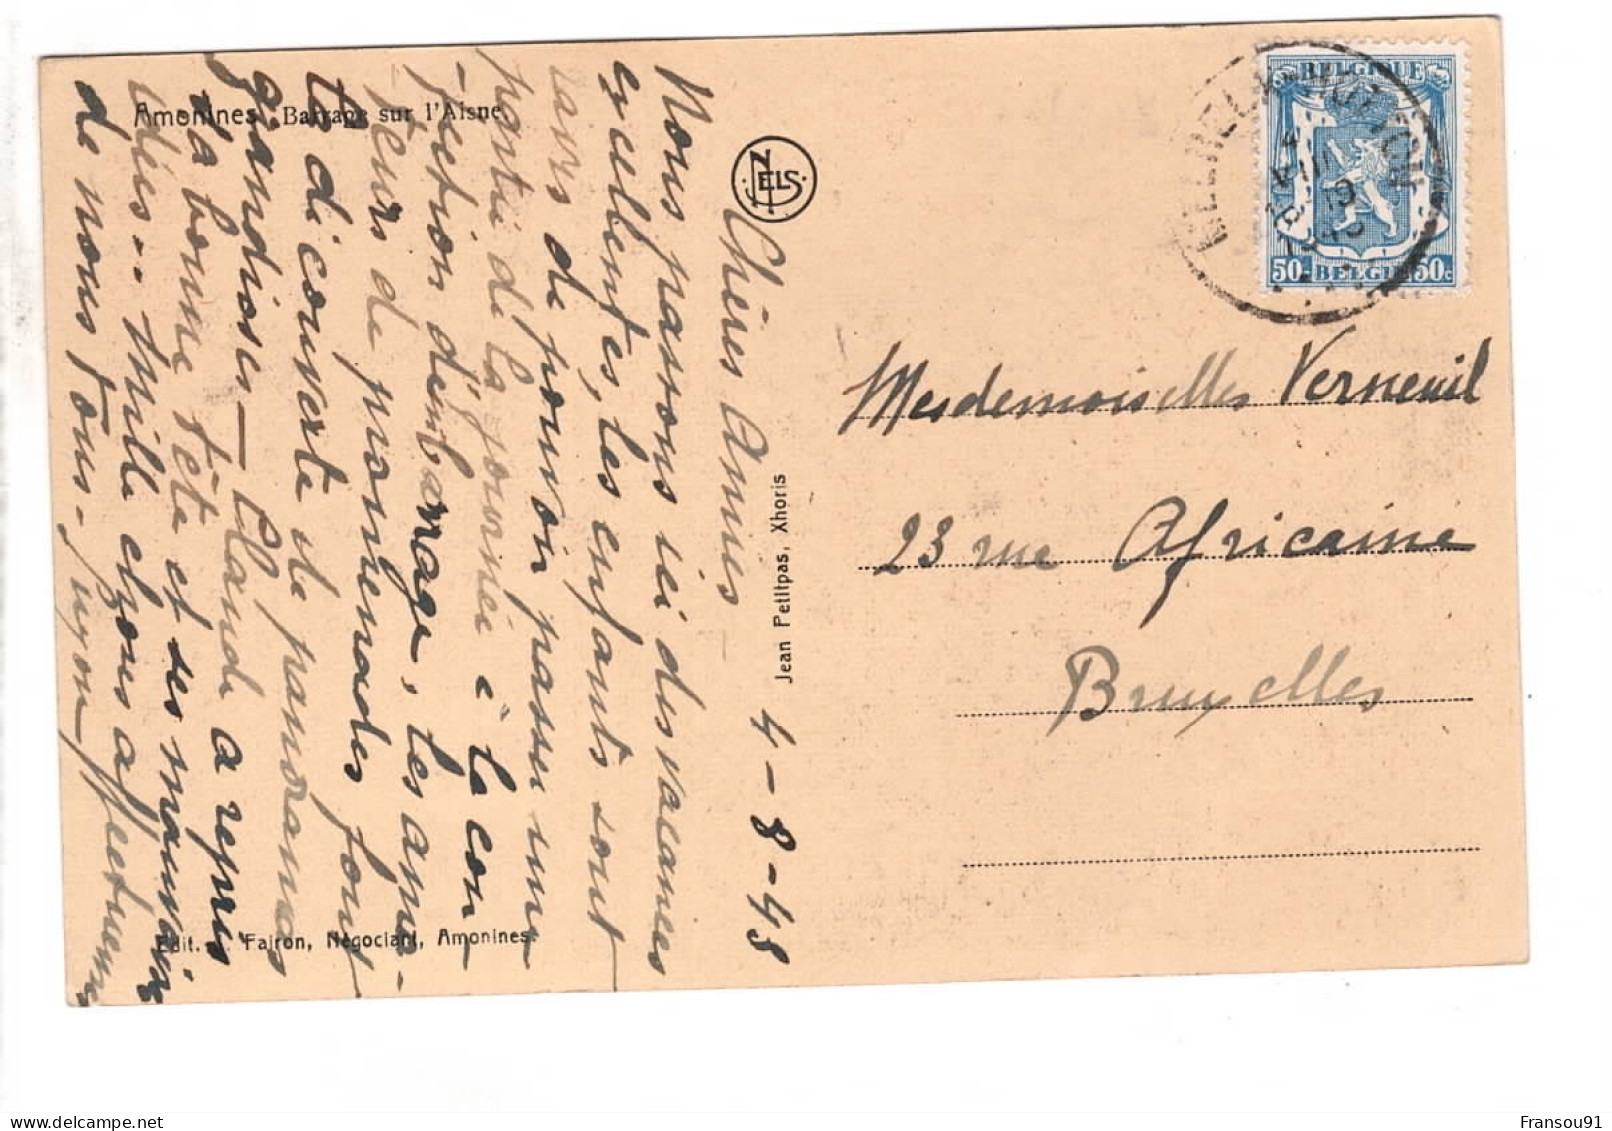 Amonines. Barrage sur l'Aisne
NELS
Chères Amies
Nous passons ici des vacances
excellentes, les enfants sont
ravis de pouvoir passer une
partie de la journée à la con-
fection d'un barrage, les ama-
teurs de promenades font
la découverte de panoramas
grandioses — Claude a repris
sa bonne tête et ses mauvaises
idées.. Mille choses affectueuses
de nous tous.
4-8-48
Jean Petitpas, Xhoris
Edit. Fairon, Négociant, Amonines.
BELGIQUE
50c BELGIË 50c
Mesdemoiselles Verneuil
23 rue Africaine
Bruxelles
Fransou91